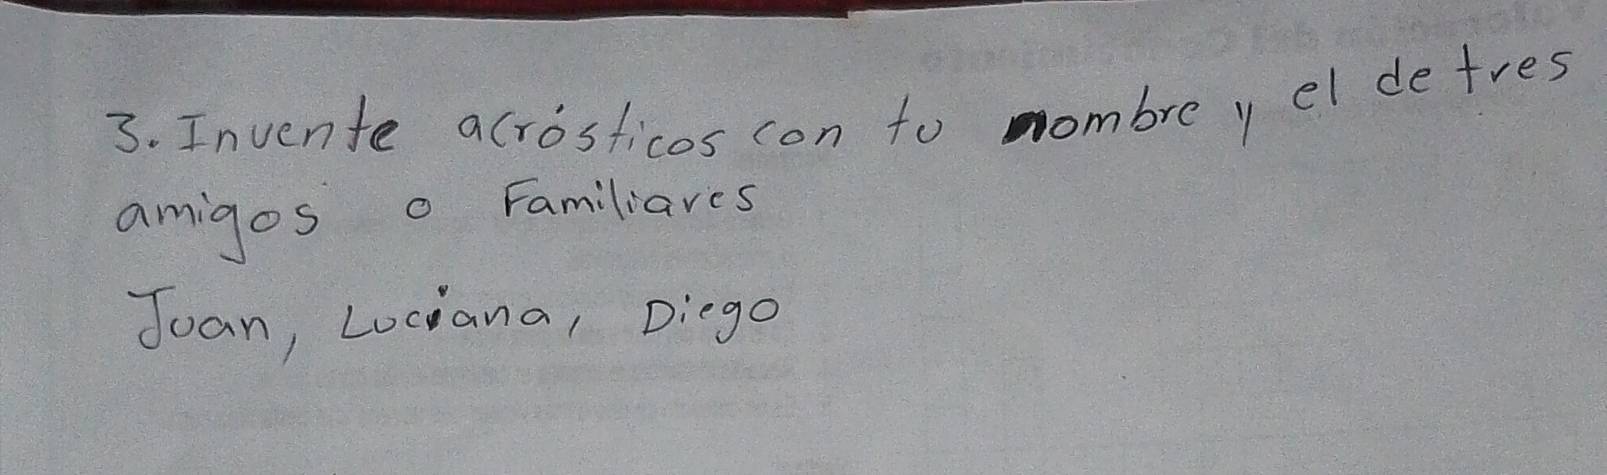 3. Invente acrósticos con tu nombre y el de tres
amigos o Familiares
Juan, Luciana, Diego